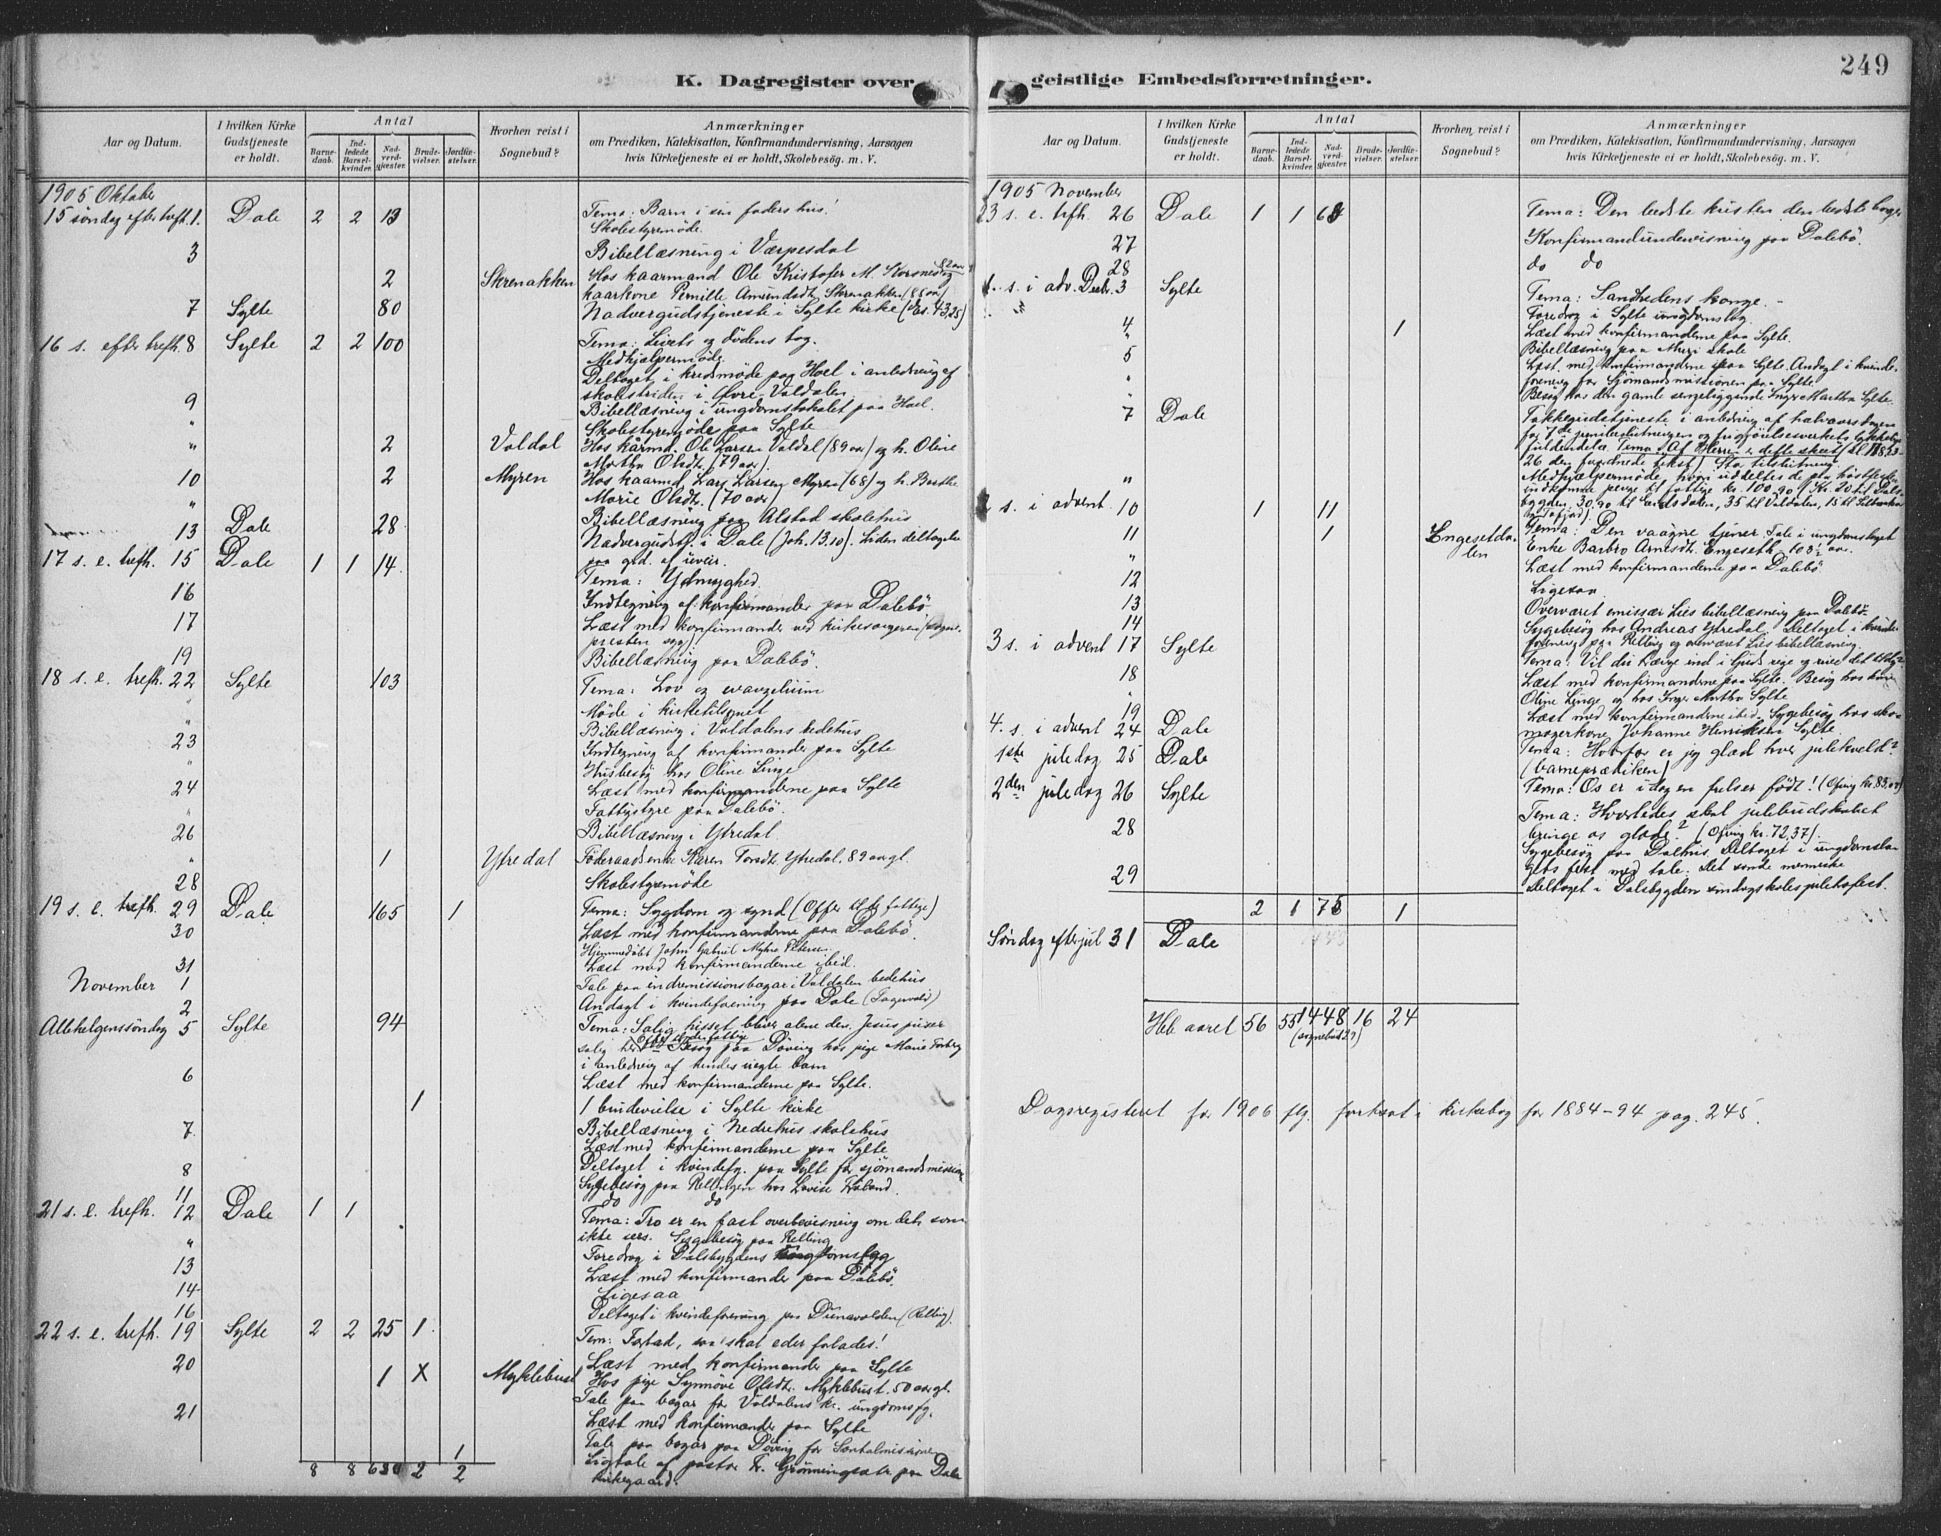 K. Dagregister over
Aar og Datum.
I hvilken Kirke Gudstjeneste er holdt.
Antal
Barnedaab.
Indledede Barselkvinder.
Nadverdgjester.
Brudevielser.
Jordfæstelser.
Hvorhen reist i Sognebud?
Anmærkninger
om Prædiken, Katekisation, Konfirmandundervisning, Aarsagen
hvis Kirketjeneste ei er holdt, Skolebesøg. m. V.
1905 Oktober
15 søndag efter trefh. 1. Dale 2 2 13 Tema: Barn i sin faders hus!
Skolestyremøde.
3 Bibellæsning i Værpesdal
2 Skrenakken Hos kaarmand Ole Kristofer M. Korsnes 82 aar og
kaarkone Pernille Amundsdt. Skrenakken (88 aar)
7 Sylte 80 Nadvergudstjeneste i Sylte kirke (Es. 43,25)
16 s. efter trefh. 8 Sylte 2 2 100 Tema: Livets og dødens tog.
Medhjælpermøde.
Deltaget i kredsmøde paa Hoel i anledning af
skolestriden i Øvre Valdalen.
9 Bibellæsning i ungdomslokalet paa Hoel.
" Skolestyremøde paa Sylte
" 2 Valdal Hos kårmd. Ole Larsen Valdal (89 aar) og h. Oline
Martha Olsdt. (79 aar).
10 2 Myren Hos kaarmd Lars Larsen Myren (68) og h. Berthe
Marie Olsdt. (70 aar)
" Dale Bibellæsning paa Alstad skolehus
13 28 Nadvergudstj. i Dale (Joh. 13.10). Liden deltagelse
paa grd. af uveir.
17 s. e. trefh. 15 Dale 1 1 14 Tema: Ydmyghed.
16 Indtegning af konfirmander paa Dalebø
17 Læst med konfirmander ved kirkesangeren (sognepresten syg)
19 Bibellæsning paa Dalebø.
18 s. e. trefh. 22 Sylte 103 Tema: Lov og evangelium
" Møde i kirketilsynet
" Bibellæsning i Valdalens bedehus
23 Indtegning af konfirmander paa Sylte
" Husbesøg hos Oline Linge
24 Læst med konfirmanderne paa Sylte
" Fattigstyre paa Dalebø.
26 Bibellæsning i Ytredal
" 1 Ytredal Føderaadsenke Karen Torsdt. Ytredal, 89 aar gl.
28 Skolestyremøde
19 s. e. trefh. 29 Dale 165 1 Tema: Sygdom og synd (Offer til fattige)
30 Læst med konfirmanderne paa Dalebø.
Hjemmedøbt John Gabriel Myhre Petersen
31 Læst med konfirmanderne ibid.
November 1 Tale paa indremissionsbazar i Valdalen bedehus
2 Andagt i kvindeforening paa Dale (Fagervold)
Allehelgenssøndag 5 Sylte 94 Tema: Salig hisset bliver alene den, Jesus priser
salig her. Besøg paa Døving hos pige Marie Forberg
i anledning af hendes uægte barn
6 Læst med konfirmanderne paa Sylte.
1 1 brudevielse i Sylte kirke
7 Bibellæsning i Nedrehus skolehus
Læst med konfirmanderne paa Sylte
8 Deltaget i kvindefg. paa Sylte for sjømandsmission
11 Sygebesøg paa Rellingen hos Lovise
do do
21 s. e. trefh. 12 Dale 1 1 Tema: Tro er en fast overbevisning om det, som
ikke sees. Sygebesøg paa Relling
" Foredrag i Dalsbygdens ungdomslag
13 Læst med konfirmander paa Dalebø.
14 Ligesaa
16 Deltaget i kvindeforening paa Dunavolden (Relling).
22 s. e. trefh. 19 Sylte 2 2 25 1 Tem: Forlad, saa skal eder forlades!
20 Læst med konfirmander paa Sylte
1 X Myklebust Hos pige Synnøve Olsdt. Myklebust. 50 aar gl.
Tale paa bazar for Valdalens kr. ungdomsfg.
21 Læst med konfirmander paa Sylte
Tale paa bazar paa Døving for Santalmissionen
1 Ligtale af pastor Fr. Grønningsæter paa Dale
kirkegaard.
8 8 630 2 2
249
geistlige Embedsforretninger.
Aar og Datum.
I hvilken Kirke Gudstjeneste er holdt.
Antal
Barnedaab.
Indledede Barselkvinder.
Nadverdgjester.
Brudevielser.
Jordfæstelser.
Hvorhen reist i Sognebud?
Anmærkninger
om Prædiken, Katekisation, Konfirmandundervisning, Aarsagen
hvis Kirketjeneste ei er holdt, Skolebesög. m. V.
1905 November
23 s. e. trfh. 26 Dale 1 1 Tema: Den bedste kristen den bedste borger
27 Konfirmandundervisning paa Dalebø.
28 do do
1. s. i adv. Decbr. 3 Sylte Tema: Sandhedens konge.
Foredrag i Sylte ungdomslag.
4 1 Læst med konfirmanderne paa Sylte.
" Bibellæsning paa Muri skole
5 Læst. med konfirmanderne paa Sylte. Andagt i kvindeforening for Sjømandsmissionen paa Sylte
" Besøg hos den gamle sengeliggende Inger Martha Sylte
7 Dale Takkegudstjeneste i anledning af halvaarsdagen
for 7de juni beslutningen og frigjørelsesverkets lykkelige
fuldendelse. Tema: Af Herren er dette skeet
26 den foreskrevne tekst) Stor tilslutning
" Medhjælpermøde, hvori uddeltes de paa høsttakkefesten
indkomne penge til fattige kr. 100,90
2 s. i advent 10 1 11 Tema: Den vaagne tjener. Tale i ungdomslaget
11 1 Engesetdalen Enke Barbro Arnesdt. Engeseth 103½ aar.
" Læst med konfirmanderne paa Dalebø
12 Ligesaa
13 Overværet emissær Lies bibellæsning paa Dalebø
14 Sygebesøg hos Andreas Ytredal. Deltaget i kvindeforening paa Relling og overværet Lies bibellæsning.
3 s. i advent 17 Sylte Tema: Vil du trænge ind i Guds rige og rive det til dig?
18 Læst med konfirmanderne paa Sylte. Besøg hos
" Oline Linge og hos Inger Martha Sylte
19 Læst med konfirmanderne ibid. Sygebesøg hos skomagerkone Johanne Henriksen Sylte
4. s. i advent 24 Dale Tema: Hvorfor er jeg glad hver julekveld?
(barneprædiken)
1ste juledag 25 Dale Tema: Os er idag en frelser født! (Ofring kr. 83,00)
2den juledag 26 Sylte Tema: Hvorledes skal julebudskabet
bringe os glæde? (Ofring kr. 72,37).
28 Sygebesøg paa Dalhus. Deltaget i ungdomslagets fest med tale: Det sande menneske
29 Deltaget i Dalsbygdens søndagskoles juletrefest.
2 1 1
Søndag efter jul 31 Dale
Hele aaret 56 55 1448 16 24
(sognebud 29)
Dagsregisteret for 1906 flg. fortsat i kirkebog for 1884-94 pag. 245.